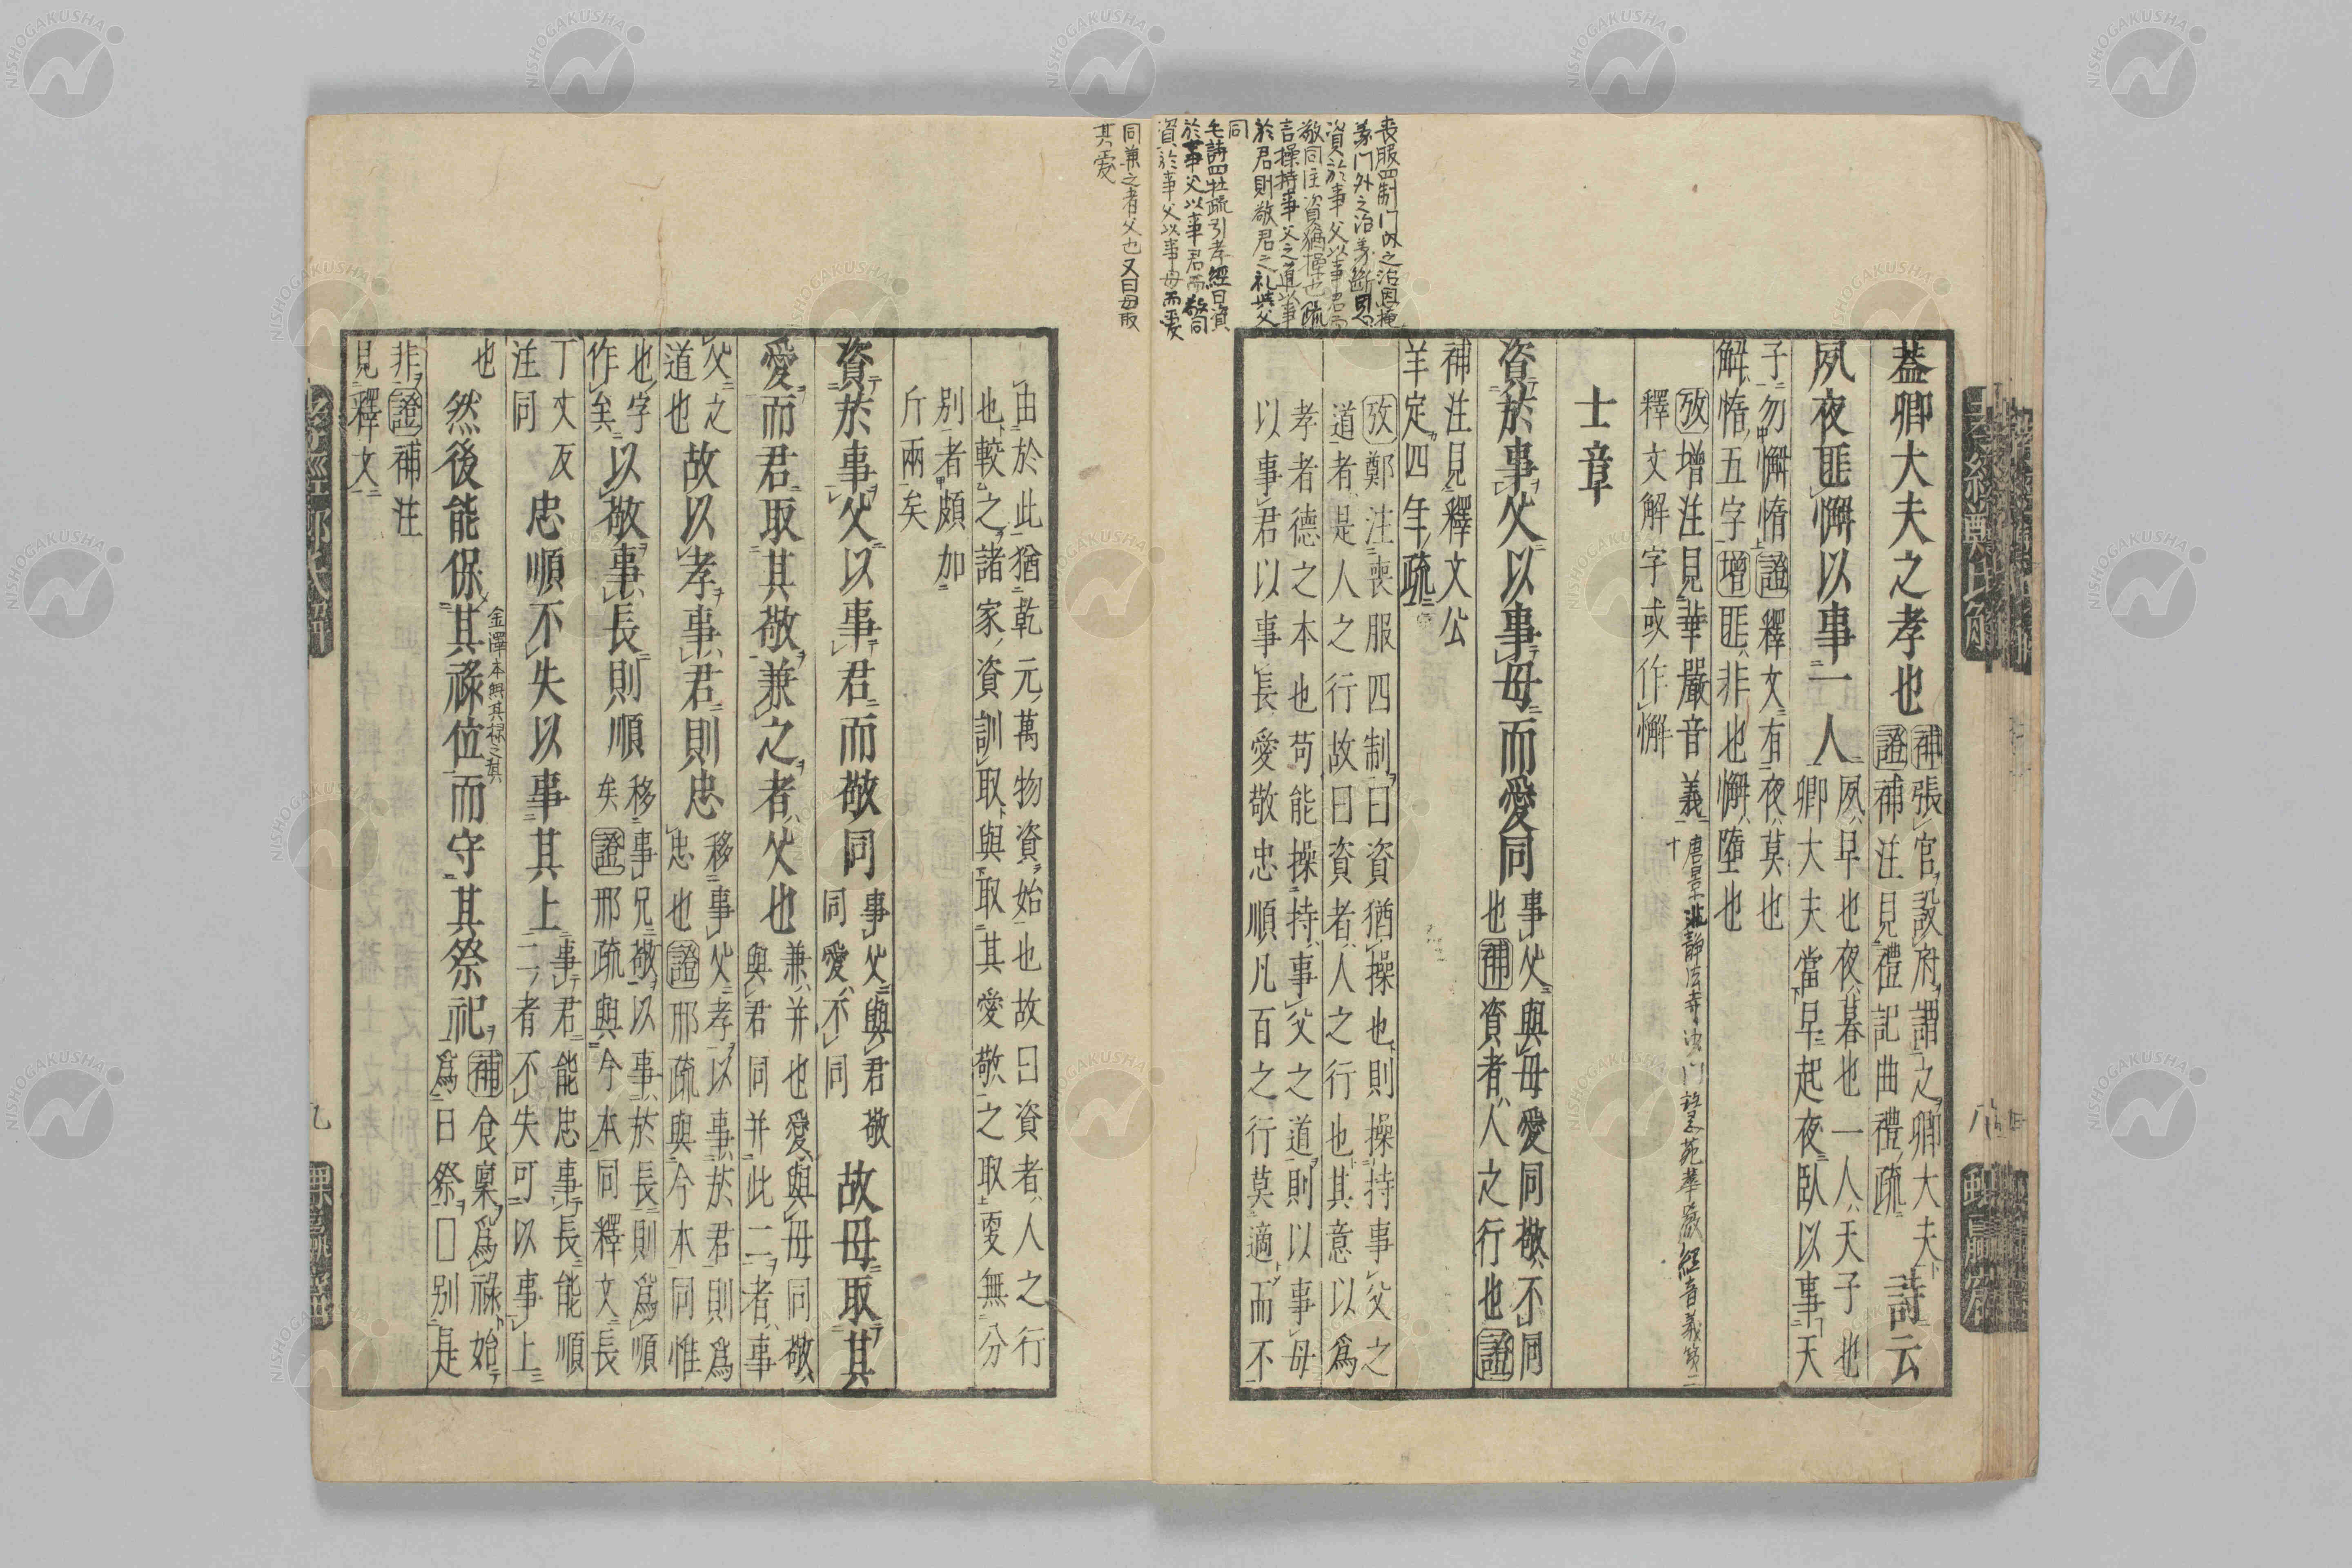 喪服四制門内之治恩掩
義門外之治義斷恩
資於事父以事君而
敬同注資猶操也疏
言操持事父之道以事
於君則敬君之礼與父
同
毛詩四牡疏引孝經曰資
於事父以事君而敬同
資於事父以事母而愛
同兼之者父也又曰母取
其愛
蓋卿大夫之孝也
補張官設府謂之卿大夫
證補注見禮記曲禮疏
詩云
夙夜匪懈以事一人
夙早也夜暮也一人天子也
卿大夫當早起夜臥以事天
子勿懈惰證釋文有夜莫也
解惰五字增匪非也懈墮也
攷增注見華嚴音義
釋文解字或作懈
静法寺沙门慧苑華嚴經音義第二
十
士章
資於事父以事母而愛同
事父與母愛同敬不同
也補資者人之行也證
補注見釋文公
羊定四年疏
攷鄭注喪服四制曰資猶操也則操持事父之
道者是人之行故曰資者人之行也其意以爲
孝者德之本也苟能操持事父之道則以事母
以事君以事長愛敬忠順凡百之行莫適而不
八
由於此猶乾元萬物資始也故曰資者人之行
也較之諸家資訓取與取其愛敬之取敻無分
別者頗加
斤兩矣
資於事父以事君而敬同
事父與君敬
同愛不同
故母取其
愛而君取其敬兼之者父也
兼并也愛與母同敬
與君同并此二者事
父之
道也
故以孝事君則忠
移事父孝以事於君則爲
忠也證邢疏與今本同惟
也字
作矣
以敬事長則順
移事兄敬以事於長則爲順
矣證邢疏與今本同釋文長
丁丈反
注同
忠順不失以事其上
事君能忠事長能順
二者不失可以事上
也
然後能保其祿位而守其祭祀
金澤本無其祿之其
補食稟爲祿始
爲日祭□別是
非證補注
見釋文
孝經鄭氏解
九
NISHOGAKUSHA